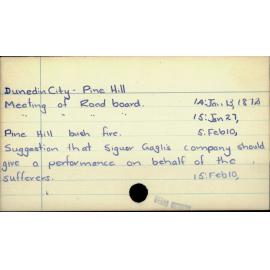 Dunedin City - Pine Hill
Meeting of Road board. 14: Jan 13, 1874
" " " " 15: Jan 27,
Pine Hill bush fire. 5: Feb 10,
Suggestion that Signor Gagli's company should
give a performance on behalf of the
sufferers. 15: Feb 10,